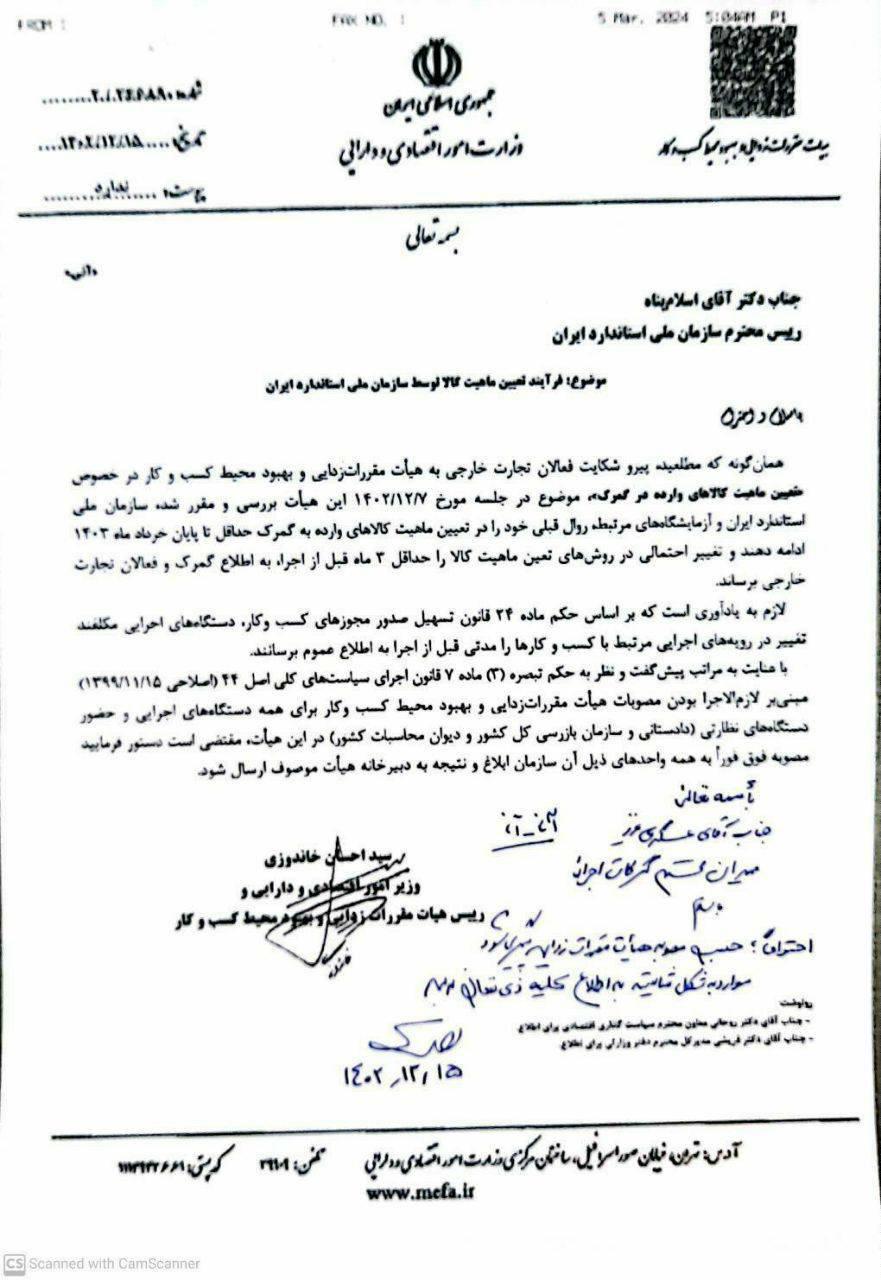 FROM :
FAX NO. :
5 Mar. 2024 5:04AM P1
جمهوری اسلامی ایران
وزارت امور اقتصادی و دارایی
هیات مقررات زدایی و بهبود محیط کسب و کار
شماره
تاریخ: ۱۴۰۲/۱۲/۱۵
پیوست: ندارد
بسمه تعالی
«آنی»
جناب دکتر آقای اسلام‌پناه
رییس محترم سازمان ملی استاندارد ایران
موضوع: فرآیند تعیین ماهیت کالا توسط سازمان ملی استاندارد ایران
باسلام و احترام
همان‌گونه که مطلعید، پیرو شکایت فعالان تجارت خارجی به هیأت مقررات‌زدایی و بهبود محیط کسب و کار در خصوص
«تعیین ماهیت کالاهای وارده در گمرک»، موضوع در جلسه مورخ ۱۴۰۲/۱۲/۷ این هیأت بررسی و مقرر شد، سازمان ملی
استاندارد ایران و آزمایشگاه‌های مرتبط، روال قبلی خود را در تعیین ماهیت کالاهای وارده به گمرک حداقل تا پایان خرداد ماه ۱۴۰۳
ادامه دهند و تغییر احتمالی در روش‌های تعین ماهیت کالا را حداقل ۳ ماه قبل از اجرا، به اطلاع گمرک و فعالان تجارت
خارجی برساند.
لازم به یادآوری است که بر اساس حکم ماده ۲۴ قانون تسهیل صدور مجوزهای کسب وکار، دستگاه‌های اجرایی مکلفند
تغییر در رویه‌های اجرایی مرتبط با کسب و کارها را مدتی قبل از اجرا به اطلاع عموم برسانند.
با عنایت به مراتب پیش‌گفت و نظر به حکم تبصره (۳) ماده ۷ قانون اجرای سیاست‌های کلی اصل ۴۴ (اصلاحی ۱۳۹۹/۱۱/۱۵)
مبنی‌بر لازم‌الاجرا بودن مصوبات هیأت مقررات‌زدایی و بهبود محیط کسب وکار برای همه دستگاه‌های اجرایی و حضور
دستگاه‌های نظارتی (دادستانی و سازمان بازرسی کل کشور و دیوان محاسبات کشور) در این هیأت، مقتضی است دستور فرمایید
مصوبه فوق فوراً به همه واحدهای ذیل آن سازمان ابلاغ و نتیجه به دبیرخانه هیأت موصوف ارسال شود.
باسمه تعالی
جناب آقای عسگری عزیز
مدیران محترم گمرکات اجرایی
سید احسان خاندوزی
وزیر امور اقتصادی و دارایی و
رییس هیات مقررات زدایی و بهبود محیط کسب و کار
احتراماً؛ حسب مصوبه هیأت مقررات زدایی
موارد به شکل به اطلاع کلیه ذی نفعان
۱۴۰۲/۱۲/۱۵
رونوشت
- جناب آقای دکتر روحانی معاون محترم سیاست گذاری اقتصادی برای اطلاع
- جناب آقای دکتر قریشی مدیرکل محترم دفتر وزارتی برای اطلاع
آدرس: تهران، خیابان صوراسرافیل، ساختمان مرکزی وزارت امور اقتصادی و دارایی تلفن: ۳۹۹۰۹ کدپستی: ۱۱۱۴۹۴۳۶۶۱
www.mefa.ir
CS Scanned with CamScanner